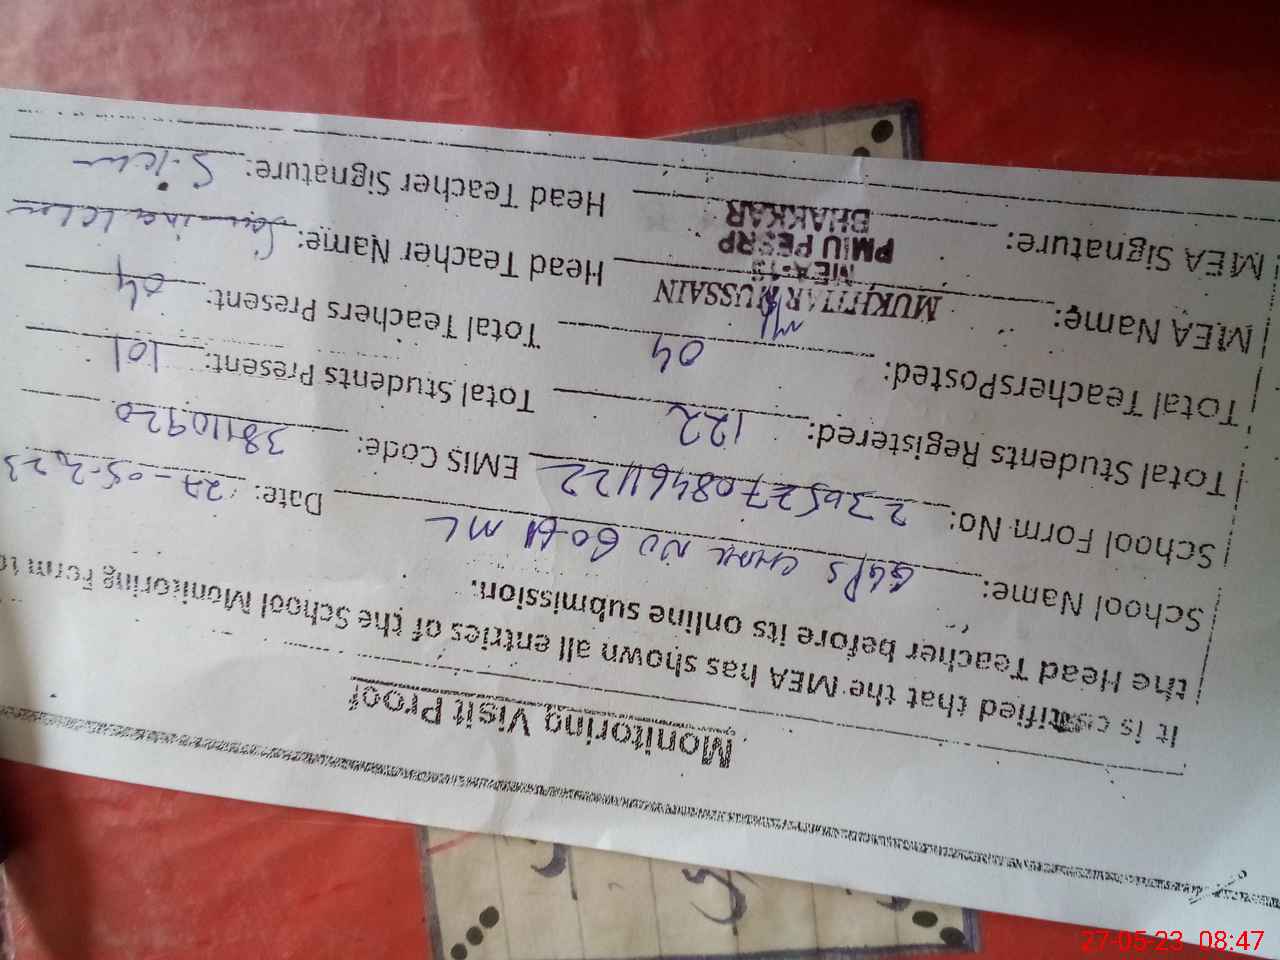 Monitoring Visit Proof
It is certified that the MEA has shown all entries of the School Monitoring Form to
the Head Teacher before its online submission.
School Name: GGPS CHAK NO 60-61 ML Date: 27-05-2023
School Form No: 230527084641122 EMIS Code: 38110920
Total Students Registered: 122 Total Students Present: 101
Total TeachersPosted: 04 Total Teachers Present: 04
MEA Name: MUKHTIAR HUSSAIN Head Teacher Name:
MEA-15
PMIU PESRP
BHAKKAR
MEA Signature: Head Teacher Signature:
27-05-23 08:47